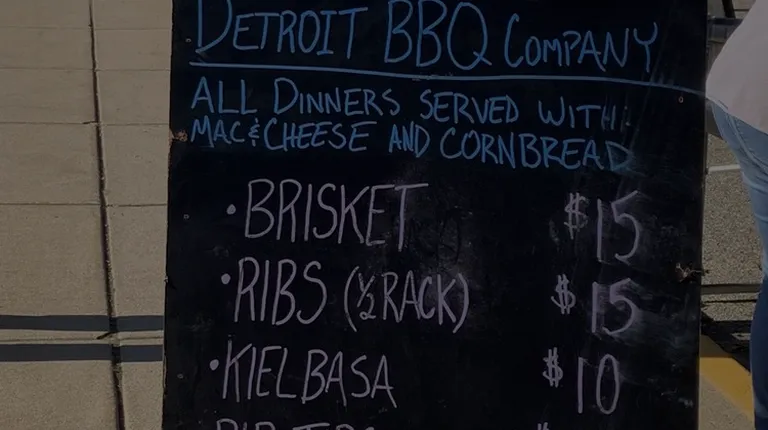 DETROIT BBQ COMPANY
ALL DINNERS SERVED WITH:
MAC & CHEESE AND CORNBREAD
• BRISKET $15
• RIBS (½ RACK) $15
• KIELBASA $10